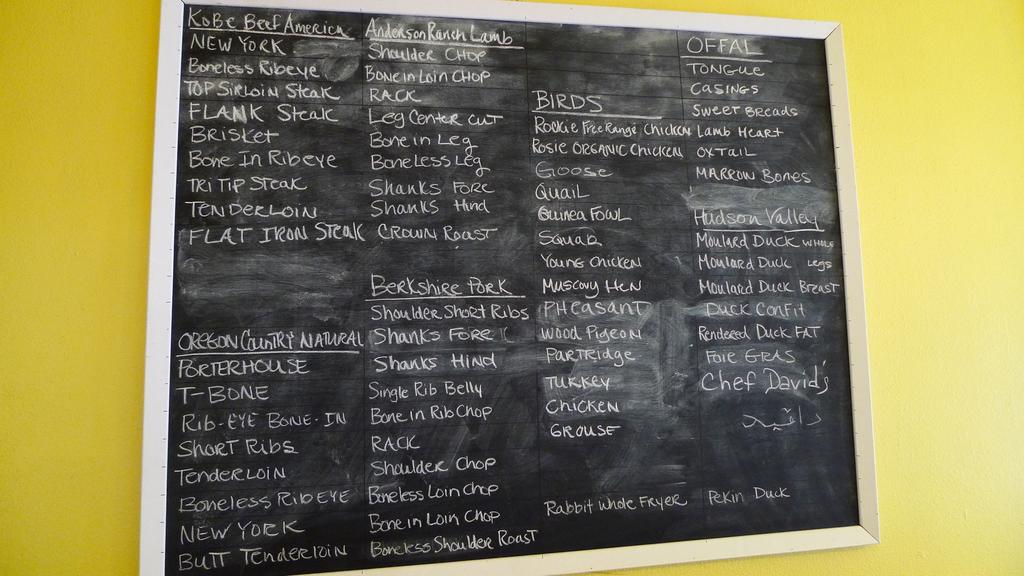 KoBe Beef America
NEW YORK
Boneless Ribeye
TOP SIRLOIN Steak
FLANK Steak
BRISKET
Bone In Ribeye
TRI TIP STEAK
TENDERLOIN
FLAT IRON STEAK
OREGON COUNTRY NATURAL
PORTERHOUSE
T-BONE
RIB-EYE BONE-IN
SHORT RIBS
TENDERLOIN
Boneless RIBEYE
NEW YORK
BUTT TENDERLOIN
Anderson Ranch Lamb
Shoulder CHOP
BONE in Loin CHOP
RACK
Leg Center CUT
Bone in Leg
Boneless Leg
Shanks FORE
Shanks Hind
CROWN ROAST
BERKSHIRE PORK
Shoulder Short Ribs
Shanks FORE
Shanks HIND
Single Rib Belly
Bone in Rib Chop
RACK
Shoulder Chop
Boneless Loin Chop
Bone in Loin Chop
Boneless Shoulder Roast
BIRDS
ROCKIE Free Range Chicken
ROSIE ORGANIC CHICKEN
Goose
QUAIL
Guinea FOWL
SQUAB
YOUNG CHICKEN
MUSCOVY HEN
PHeasant
WOOD PIGEON
PARTRIDGE
TURKEY
CHICKEN
GROUSE
Rabbit Whole Fryer
OFFAL
TONGUE
CASINGS
SWEET BREADS
Lamb HeaRT
OXTAIL
MARROW BONES
Hudson Valley
Moulard Duck WHOLE
Moulard Duck Legs
Moulard Duck Breast
Duck Confit
Rendered Duck FAT
FOIE GRAS
Chef David's
Pekin Duck